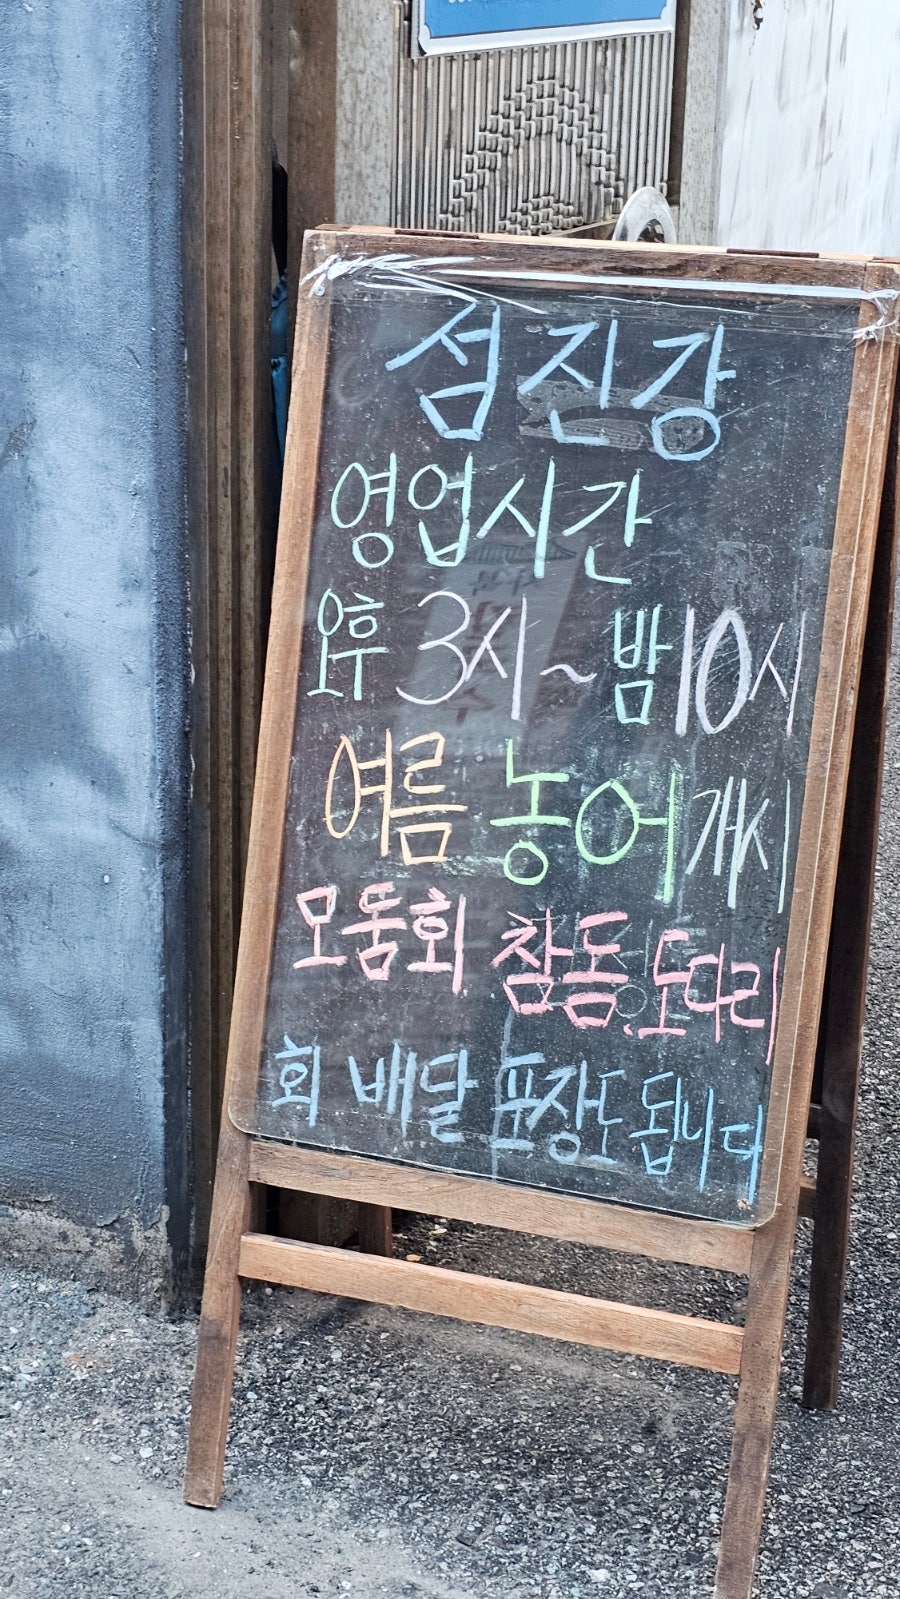 섬진강
영업시간
오후 3시~밤10시
여름 농어 개시
모둠회 참돔.도다리
회 배달 포장도 됩니다